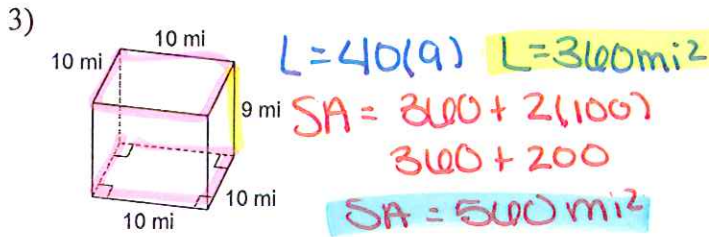 3)
10 mi
10 mi
9 mi
10 mi
10 mi
L=40(9) L=360mi²
SA = 360 + 2(100)
360 + 200
SA = 560 mi²